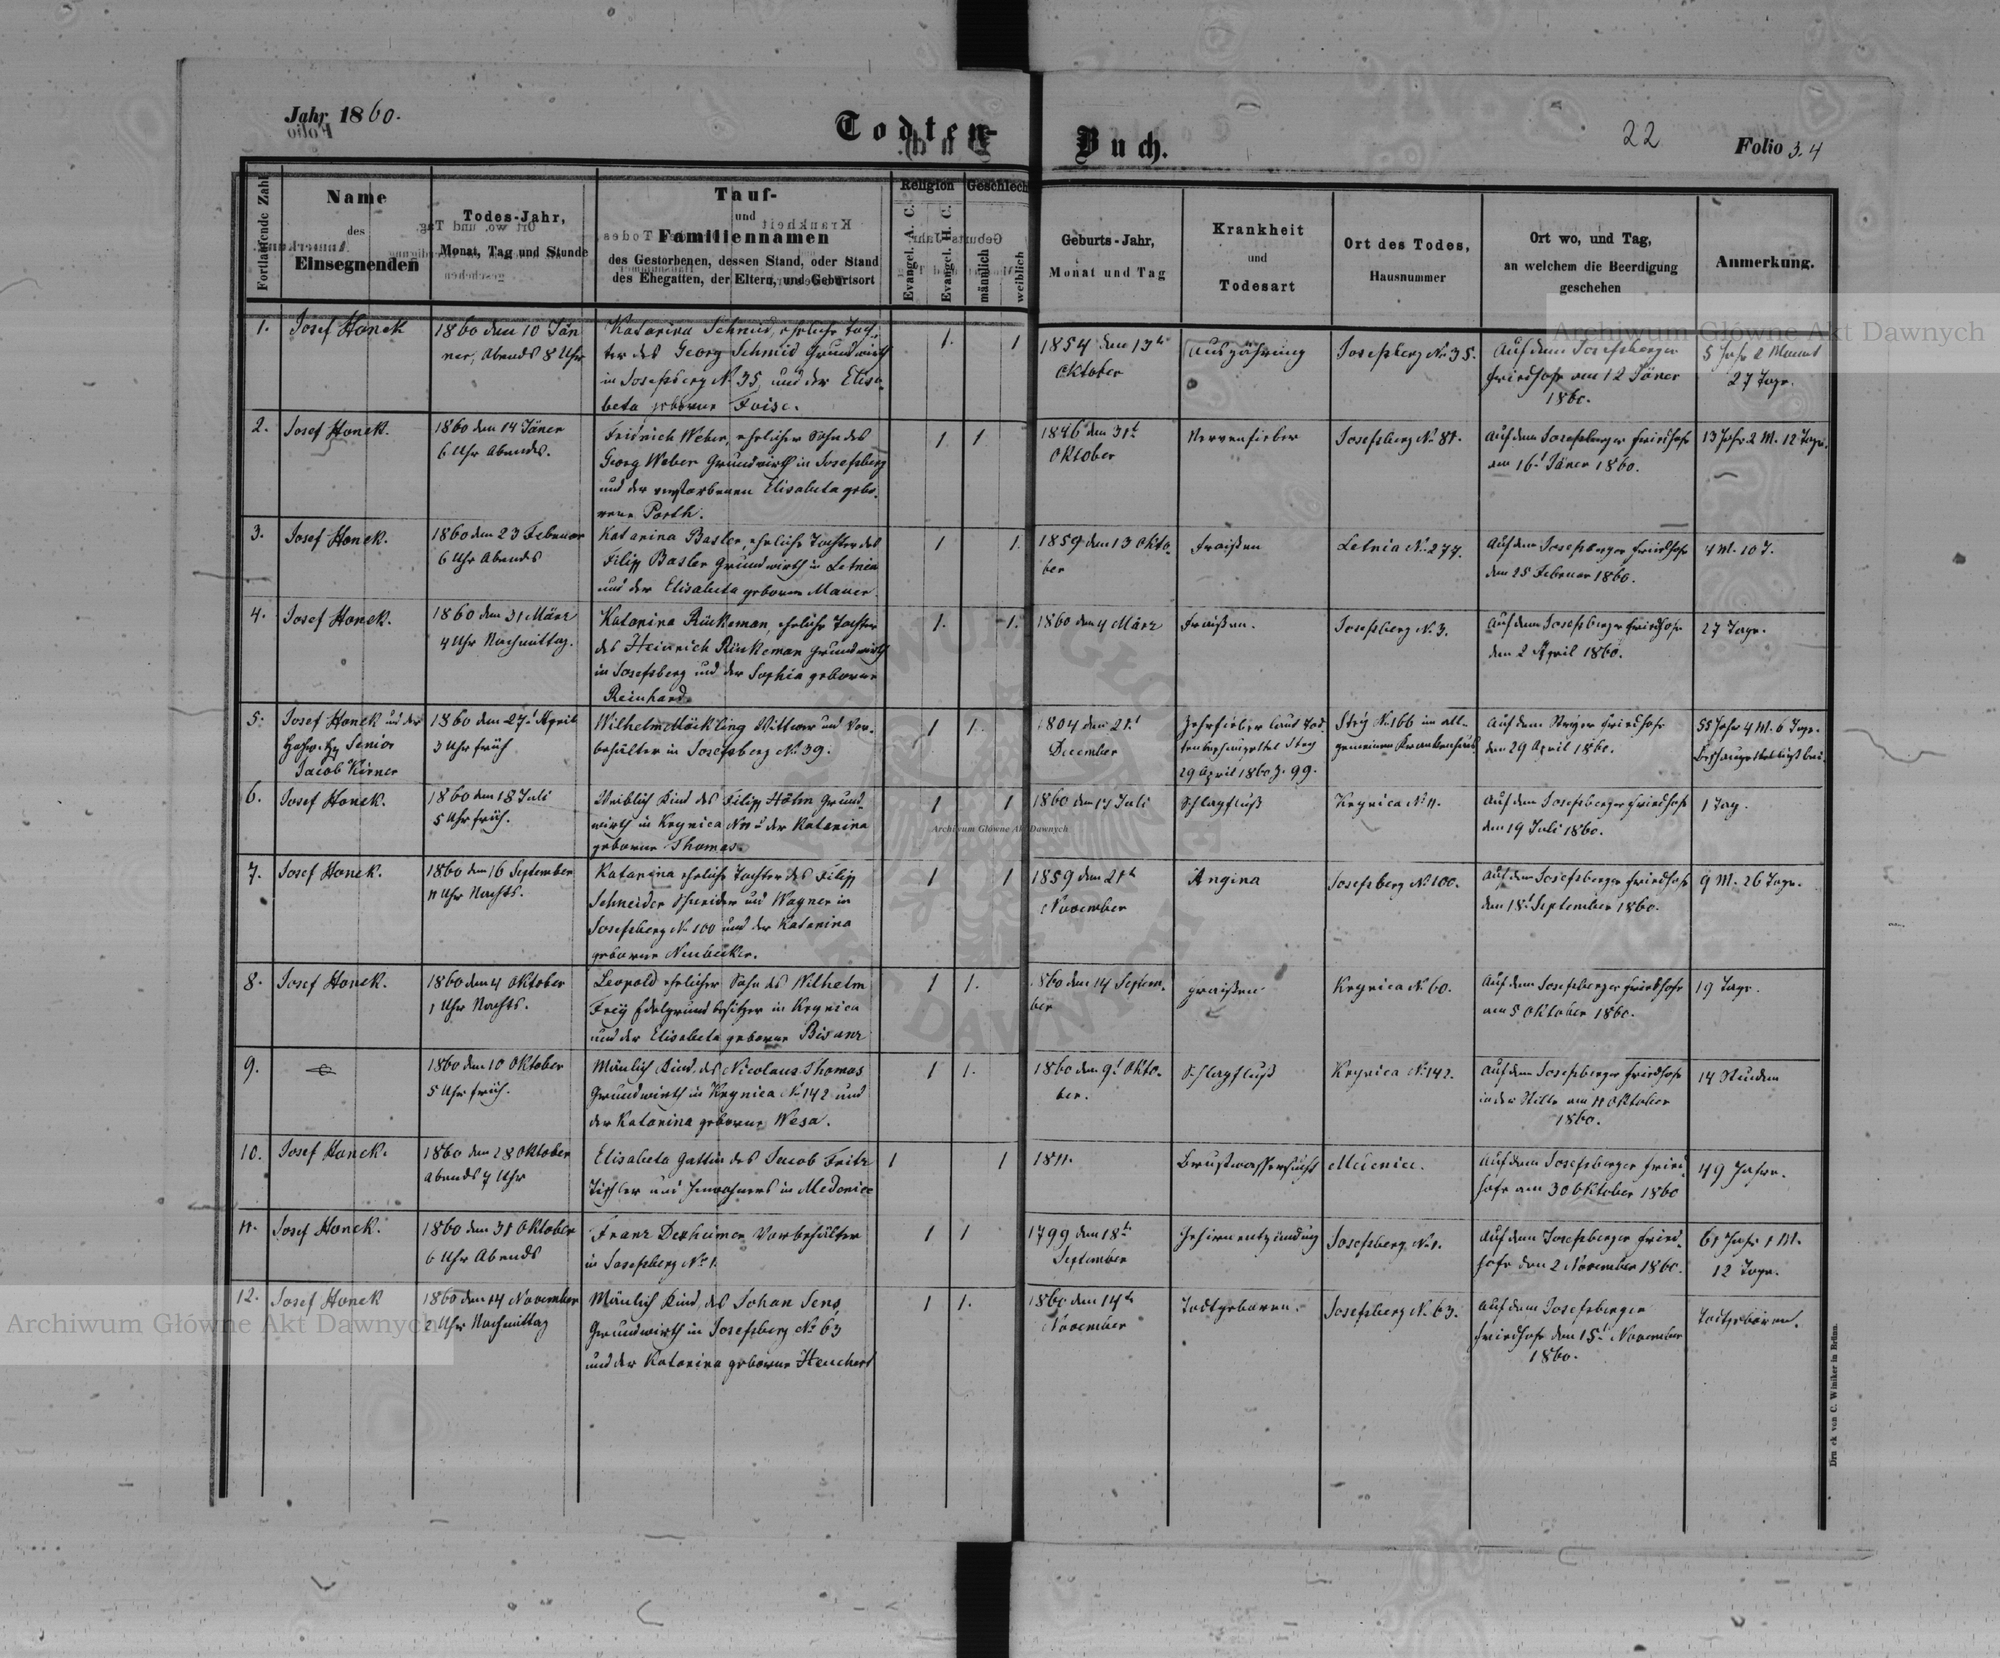 Jahr 1860.
Todten-
Buch.
22
Folio 3.4
Fortlaufende Zahl
Name
des
Einsegnenden
Todes-Jahr,
Monat, Tag und Stunde
Tauf-
und
Familiennamen
des Gestorbenen, dessen Stand, oder Stand
des Ehegatten, der Eltern, und Geburtsort
Religion
Evangel. A. C.
Evangel. H. C.
Geschlech
männlich
weiblich
Geburts-Jahr,
Monat und Tag
Krankheit
und
Todesart
Ort des Todes,
Hausnummer
Ort wo, und Tag,
an welchem die Beerdigung
geschehen
Anmerkung.
1.
Josef Honek
1860 den 10 Jän
ner, Abends 8 Uhr
Katarina Schmid, ehrliche Toch-
ter des Georg Schmid Grundwirth
in Josefsberg No 35, und der Elisa-
beta geborne Foise.
1.
1
1854 den 13t
Oktober
Auszehrung
Josefsberg No 35.
Auf dem Josefsberger
Friedhofe am 12 Jäner
1860.
5 Jahr 2 Monat
27 Tage.
2.
Josef Honek.
1860 den 14 Jäner
6 Uhr Abends.
Fridrich Weber, ehrlicher Sohn des
Georg Weber Grundwirth in Josefsberg
und der verstorbenen Elisabeta gebo-
rene Porth.
1
1
1846 den 31t
Oktober
Nervenfieber
Josefsberg No 81.
Auf dem Josefsberger Friedhofe
am 16t Jäner 1860.
13 Jahr 2 M. 12 Tage.
3.
Josef Honek.
1860 den 23 Februar
6 Uhr Abends
Katarina Basler, ehrliche Tochter des
Filip Basler Grundwirth in Letnia
und der Elisabeta geborne Mauer.
1
1.
1859 den 13 Okto-
ber
Fraißen
Letnia No 277.
Auf dem Josefsberger Friedhofe
den 25 Februar 1860.
4 M. 10 T.
4.
Josef Honek.
1860 den 31 März
4 Uhr Nachmittag.
Katarina Rückeman, ehrliche Tochter
des Heinrich Rückeman Grundwirth
in Josefsberg und der Sophia geborne
Reinhard.
1.
1.
1860 den 4 März
Fraißen.
Josefsberg No 3.
Auf dem Josefsberger Friedhofe
den 2 April 1860.
27 Tage.
5.
Josef Honek und der
Senior
Jacob Kirner
1860 den 27t April
3 Uhr früh
Wilhelm Möckling Wittwer und Vor-
behälter in Josefsberg No 39.
1
1.
1804 den 21t
December
Zehrfieber laut Tod
Stry
29 April 1860 Z. 99.
Stry No 166 im all-
gemeinen Krankenhaus
Auf dem Stryer Friedhofe
den 29 April 1860.
55 Jahr 4 M. 6 Tage.
6.
Josef Honek.
1860 den 18 Juli
5 Uhr früh.
Weiblich Kind des Filipp Höhn Grund-
wirth in Krynica No 11 u der Katarina
geborne Thomas.
1
1
1860 den 17 Juli
Schlagfluß
Krynica No 11.
Auf dem Josefsberger Friedhofe
den 19 Juli 1860.
1 Tag.
7.
Josef Honek.
1860 den 16 September
11 Uhr Nachts.
Katarina ehrliche Tochter des Filipp
Schneider Schneider und Wagner in
Josefsberg No 100 und der Katarina
geborne Neubecker.
1
1
1859 den 21t
November
Angina
Josefsberg No 100.
Auf dem Josefsberger Friedhofe
den 18t September 1860.
9 M. 26 Tage.
8.
Josef Honek.
1860 den 4 Oktober
1 Uhr Nachts.
Leopold ehrlicher Sohn des Wilhelm
Frey Edelgrund besitzer in Krynica
und der Elisabeta geborne Bisanz
1
1.
1860 den 14 Septem-
ber
Fraißen
Krynica No 60.
Auf dem Josefsberger Friedhofe
am 5 Oktober 1860.
19 Tage.
9.
1860 den 10 Oktober
5 Uhr früh.
Mänlich Kind des Nicolaus Thomas
Grundwirth in Krynica No 142 und
der Katarina geborne Wesa.
1
1.
1860 den 9t Okto-
ber.
Schlagfluß
Krynica No 142.
Auf dem Josefsberger Friedhofe
in der Stille am 11 Oktober
1860.
14 Stunden
10.
Josef Honek.
1860 den 28 Oktober
Abends 7 Uhr
Elisabeta Gattin des Jacob Fritz
Tischler und Inwohners in Medenice
1
1
1811.
Brustwassersucht
Medenice.
Auf dem Josefsberger Fried-
hofe am 30 Oktober 1860
49 Jahre.
11.
Josef Honek.
1860 den 31 Oktober
6 Uhr Abends
Franz Dexheimer Vorbehälter
in Josefsberg No 1.
1
1
1799 den 18t
September
Gehirnentzündung
Josefsberg No 1.
Auf dem Josefsberger Fried-
hofe den 2 November 1860.
61 Jahr 1 M.
12 Tage.
12.
Josef Honek
1860 den 14 November
2 Uhr Nachmittag
Mänlich Kind des Johan Jens
Grundwirth in Josefsberg No 63
und der Katarina geborne Heuchert
1
1.
1860 den 14t
November
Todtgeboren.
Josefsberg No 63.
Auf dem Josefsberger
Friedhofe den 15t November
1860.
Todtgeboren.
Druck von C. Winiker in Brünn.
Archiwum Główne Akt Dawnych
Archiwum Główne Akt Dawnych
Archiwum Główne Akt Dawnych